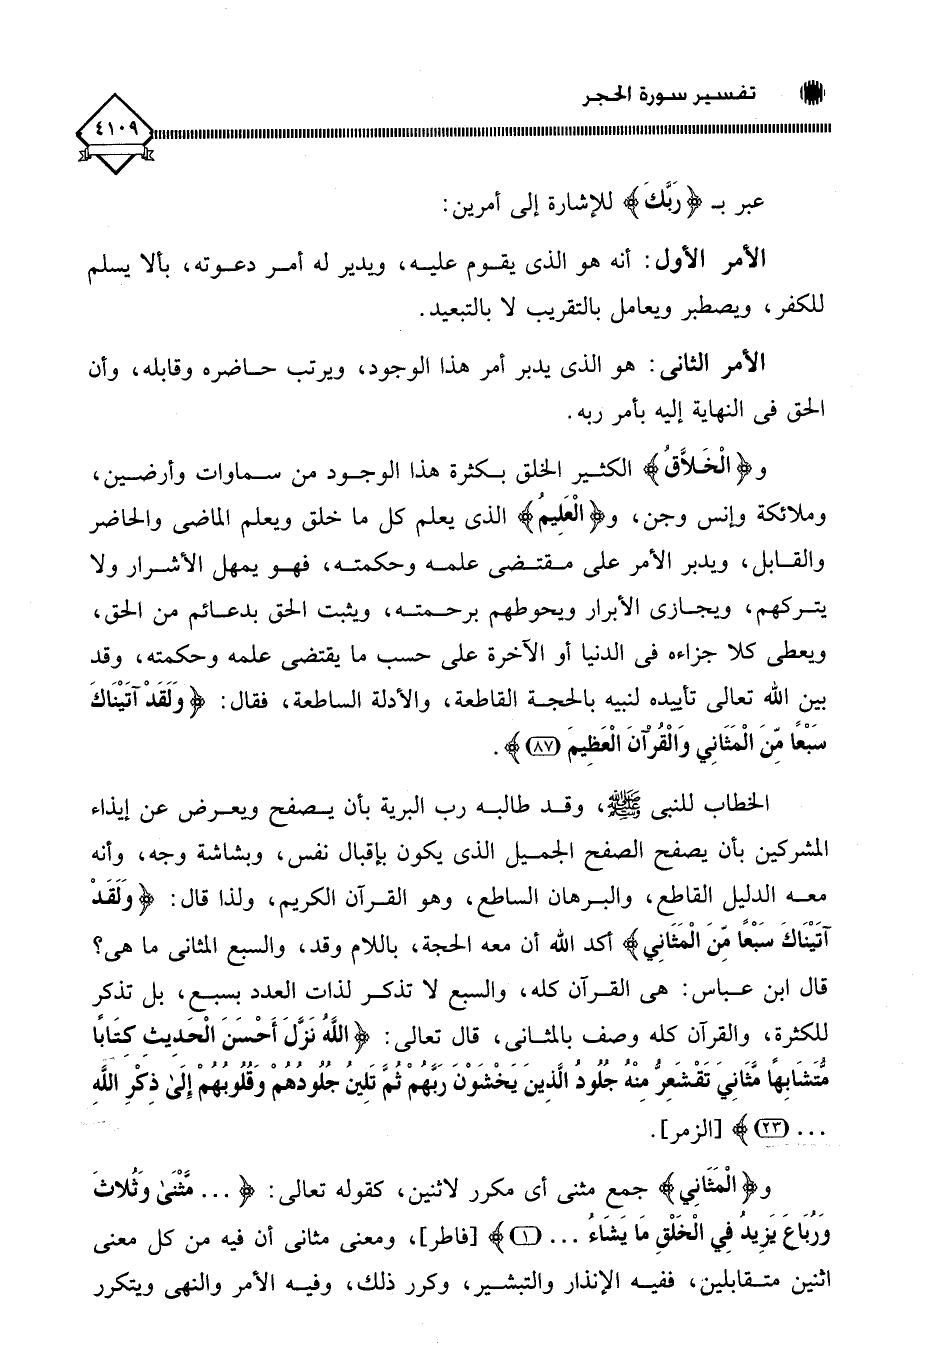 تفسير سورة الحجر
٤١٠٩
عبر بـ ﴿رَبَّكَ﴾ للإشارة إلى أمرين:
الأمر الأول: أنه هو الذى يقوم عليه، ويدير له أمر دعوته، بألا يسلم
للكفر، ويصطبر ويعامل بالتقريب لا بالتبعيد.
الأمر الثانى: هو الذى يدبر أمر هذا الوجود، ويرتب حاضره وقابله، وأن
الحق فى النهاية إليه بأمر ربه.
و﴿الْخَلاَّقُ﴾ الكثير الخلق بكثرة هذا الوجود من سماوات وأرضين،
وملائكة وإنس وجن، و﴿الْعَلِيمُ﴾ الذى يعلم كل ما خلق ويعلم الماضى والحاضر
والقابل، ويدبر الأمر على مقتضى علمه وحكمته، فهو يمهل الأشرار ولا
يتركهم، ويجازى الأبرار ويحوطهم برحمته، ويثبت الحق بدعائم من الحق،
ويعطى كلا جزاءه فى الدنيا أو الآخرة على حسب ما يقتضى علمه وحكمته، وقد
بين الله تعالى تأييده لنبيه بالحجة القاطعة، والأدلة الساطعة، فقال: ﴿وَلَقَدْ آتَيْنَاكَ
سَبْعًا مِّنَ الْمَثَانِي وَالْقُرْآنَ الْعَظِيمَ (٨٧)﴾.
الخطاب للنبى ﷺ، وقد طالبه رب البرية بأن يصفح ويعرض عن إيذاء
المشركين بأن يصفح الصفح الجميل الذى يكون بإقبال نفس، وبشاشة وجه، وأنه
معه الدليل القاطع، والبرهان الساطع، وهو القرآن الكريم، ولذا قال: ﴿وَلَقَدْ
آتَيْنَاكَ سَبْعًا مِّنَ الْمَثَانِي﴾ أكد الله أن معه الحجة، باللام وقد، والسبع المثانى ما هى؟
قال ابن عباس: هى القرآن كله، والسبع لا تذكر لذات العدد بسبع، بل تذكر
للكثرة، والقرآن كله وصف بالمثانى، قال تعالى: ﴿اللَّهُ نَزَّلَ أَحْسَنَ الْحَدِيثِ كِتَابًا
مُّتَشَابِهًا مَّثَانِيَ تَقْشَعِرُّ مِنْهُ جُلُودُ الَّذِينَ يَخْشَوْنَ رَبَّهُمْ ثُمَّ تَلِينُ جُلُودُهُمْ وَقُلُوبُهُمْ إِلَىٰ ذِكْرِ اللَّهِ
... (٢٣)﴾ [الزمر].
و﴿الْمَثَانِي﴾ جمع مثنى أى مكرر لاثنين، كقوله تعالى: ﴿... مَّثْنَىٰ وَثُلاثَ
وَرُبَاعَ يَزِيدُ فِي الْخَلْقِ مَا يَشَاءُ ... (١)﴾ [فاطر]، ومعنى مثانى أن فيه من كل معنى
اثنين متقابلين، ففيه الإنذار والتبشير، وكرر ذلك، وفيه الأمر والنهى ويتكرر